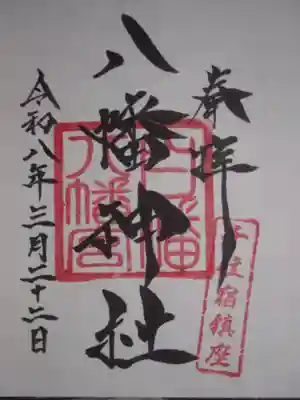 奉拝
千住宿鎮座
八幡神社
八幡宮
令和八年三月二十二日